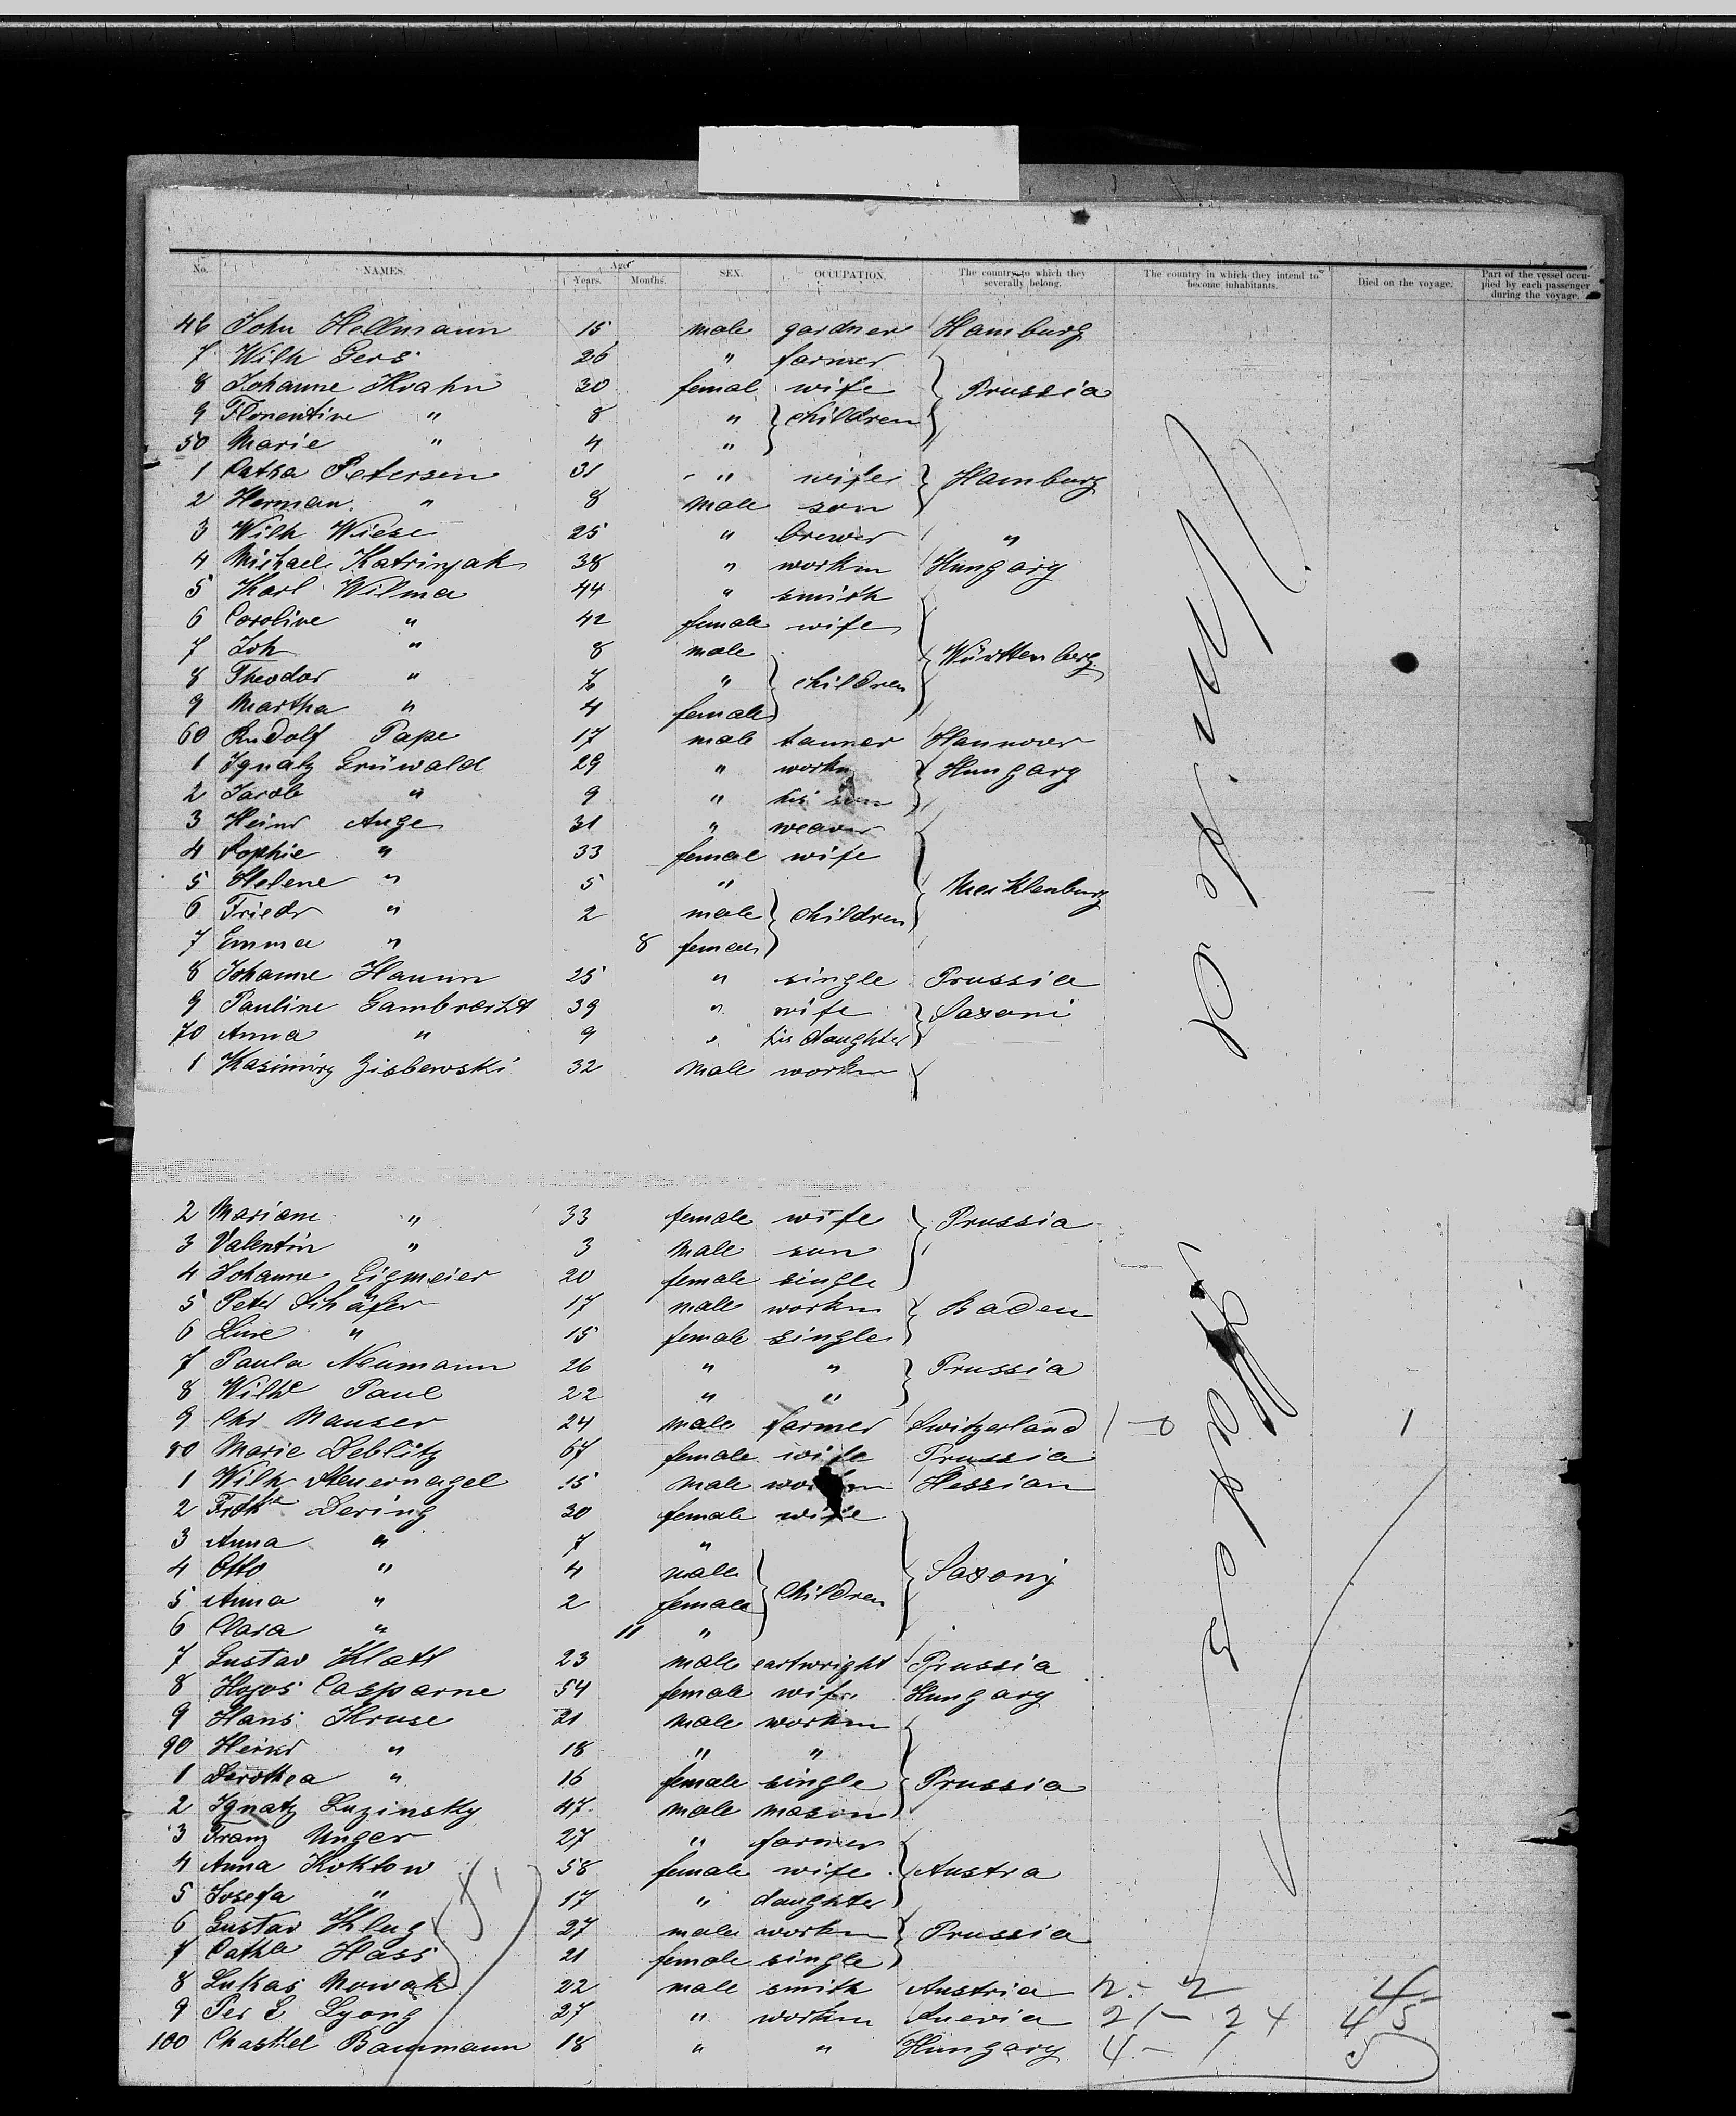 No. NAMES. Age Years. Months. SEX. OCCUPATION. The country to which they severally belong. The country in which they intend to become inhabitants. Died on the voyage. Part of the vessel occupied by each passenger during the voyage.
46 John Hellmann 15 male gardner Hamburg
7 Wilh Gers 26 " farmer
8 Johanne Krahn 30 femal wife Prussia
9 Florentine " 8 " children
50 Marie " 4 "
1 Catha Petersen 31 " wife Hamburg
2 Herman " 8 male son
3 Wilh Wiese 25 " brewer "
4 Michael Katrinjak 38 " workm Hungary
5 Karl Wilma 44 " smith
6 Caroline " 42 female wife
7 Joh " 8 male Württenberg
8 Theodor " 7 " children
9 Martha " 4 female
60 Rudolf Pape 17 male tanner Hannover
1 Ignatz Grüwald 29 " workm Hungary
2 Jacob " 9 " his son
3 Heinr Ange 31 " weaver
4 Sophie " 33 female wife
5 Helene " 5 " Mecklenburg
6 Friedr " 2 male children
7 Emma " 8 female
8 Johanne Hamm 25 " single Prussia
9 Pauline Gambrecht 39 " wife Saxoni
70 Anna " 9 " his daughter
1 Kasimirz Zisbewski 32 male workm
2 Mariane " 33 female wife Prussia
3 Valentin " 3 male son
4 Johanne Eigmeier 20 female single
5 Peter Schäfer 17 male workm Baden
6 Line " 15 female single
7 Paula Neumann 26 " " Prussia
8 Wilhe Paul 22 " "
9 Chr Mauser 24 male farmer Switzerland 1
80 Marie Deblitz 67 female wife Prussia
1 Wilh Steuernagel 15 male workm Hessian
2 Dering 30 female wife
3 Anna " 7 "
4 Otto " 4 male children Saxony
5 Anna " 2 female
6 Clara " 11 "
7 Gustav Klatt 23 male cartwright Prussia
8 Hojos Casparne 54 female wife Hungary
9 Hans Kruse 21 male workm
90 Heinr " 18 " "
1 Dorothea " 16 female single Prussia
2 Ignatz Luzinsky 47 male mason
3 Franz Unger 27 " farmer
4 Anna Koktow 58 female wife Austra
5 Josefa " 17 " daughter
6 Gustav Klug 27 male workm Prussia
7 Catha Hass 21 female single
8 Lukas Nowak 22 male smith Austria 2 - 2 4
9 Per E Ljong 27 " workm Suevia 21 - 24 45
100 Chaskel Baumann 18 " " Hungary 4 - 1 5